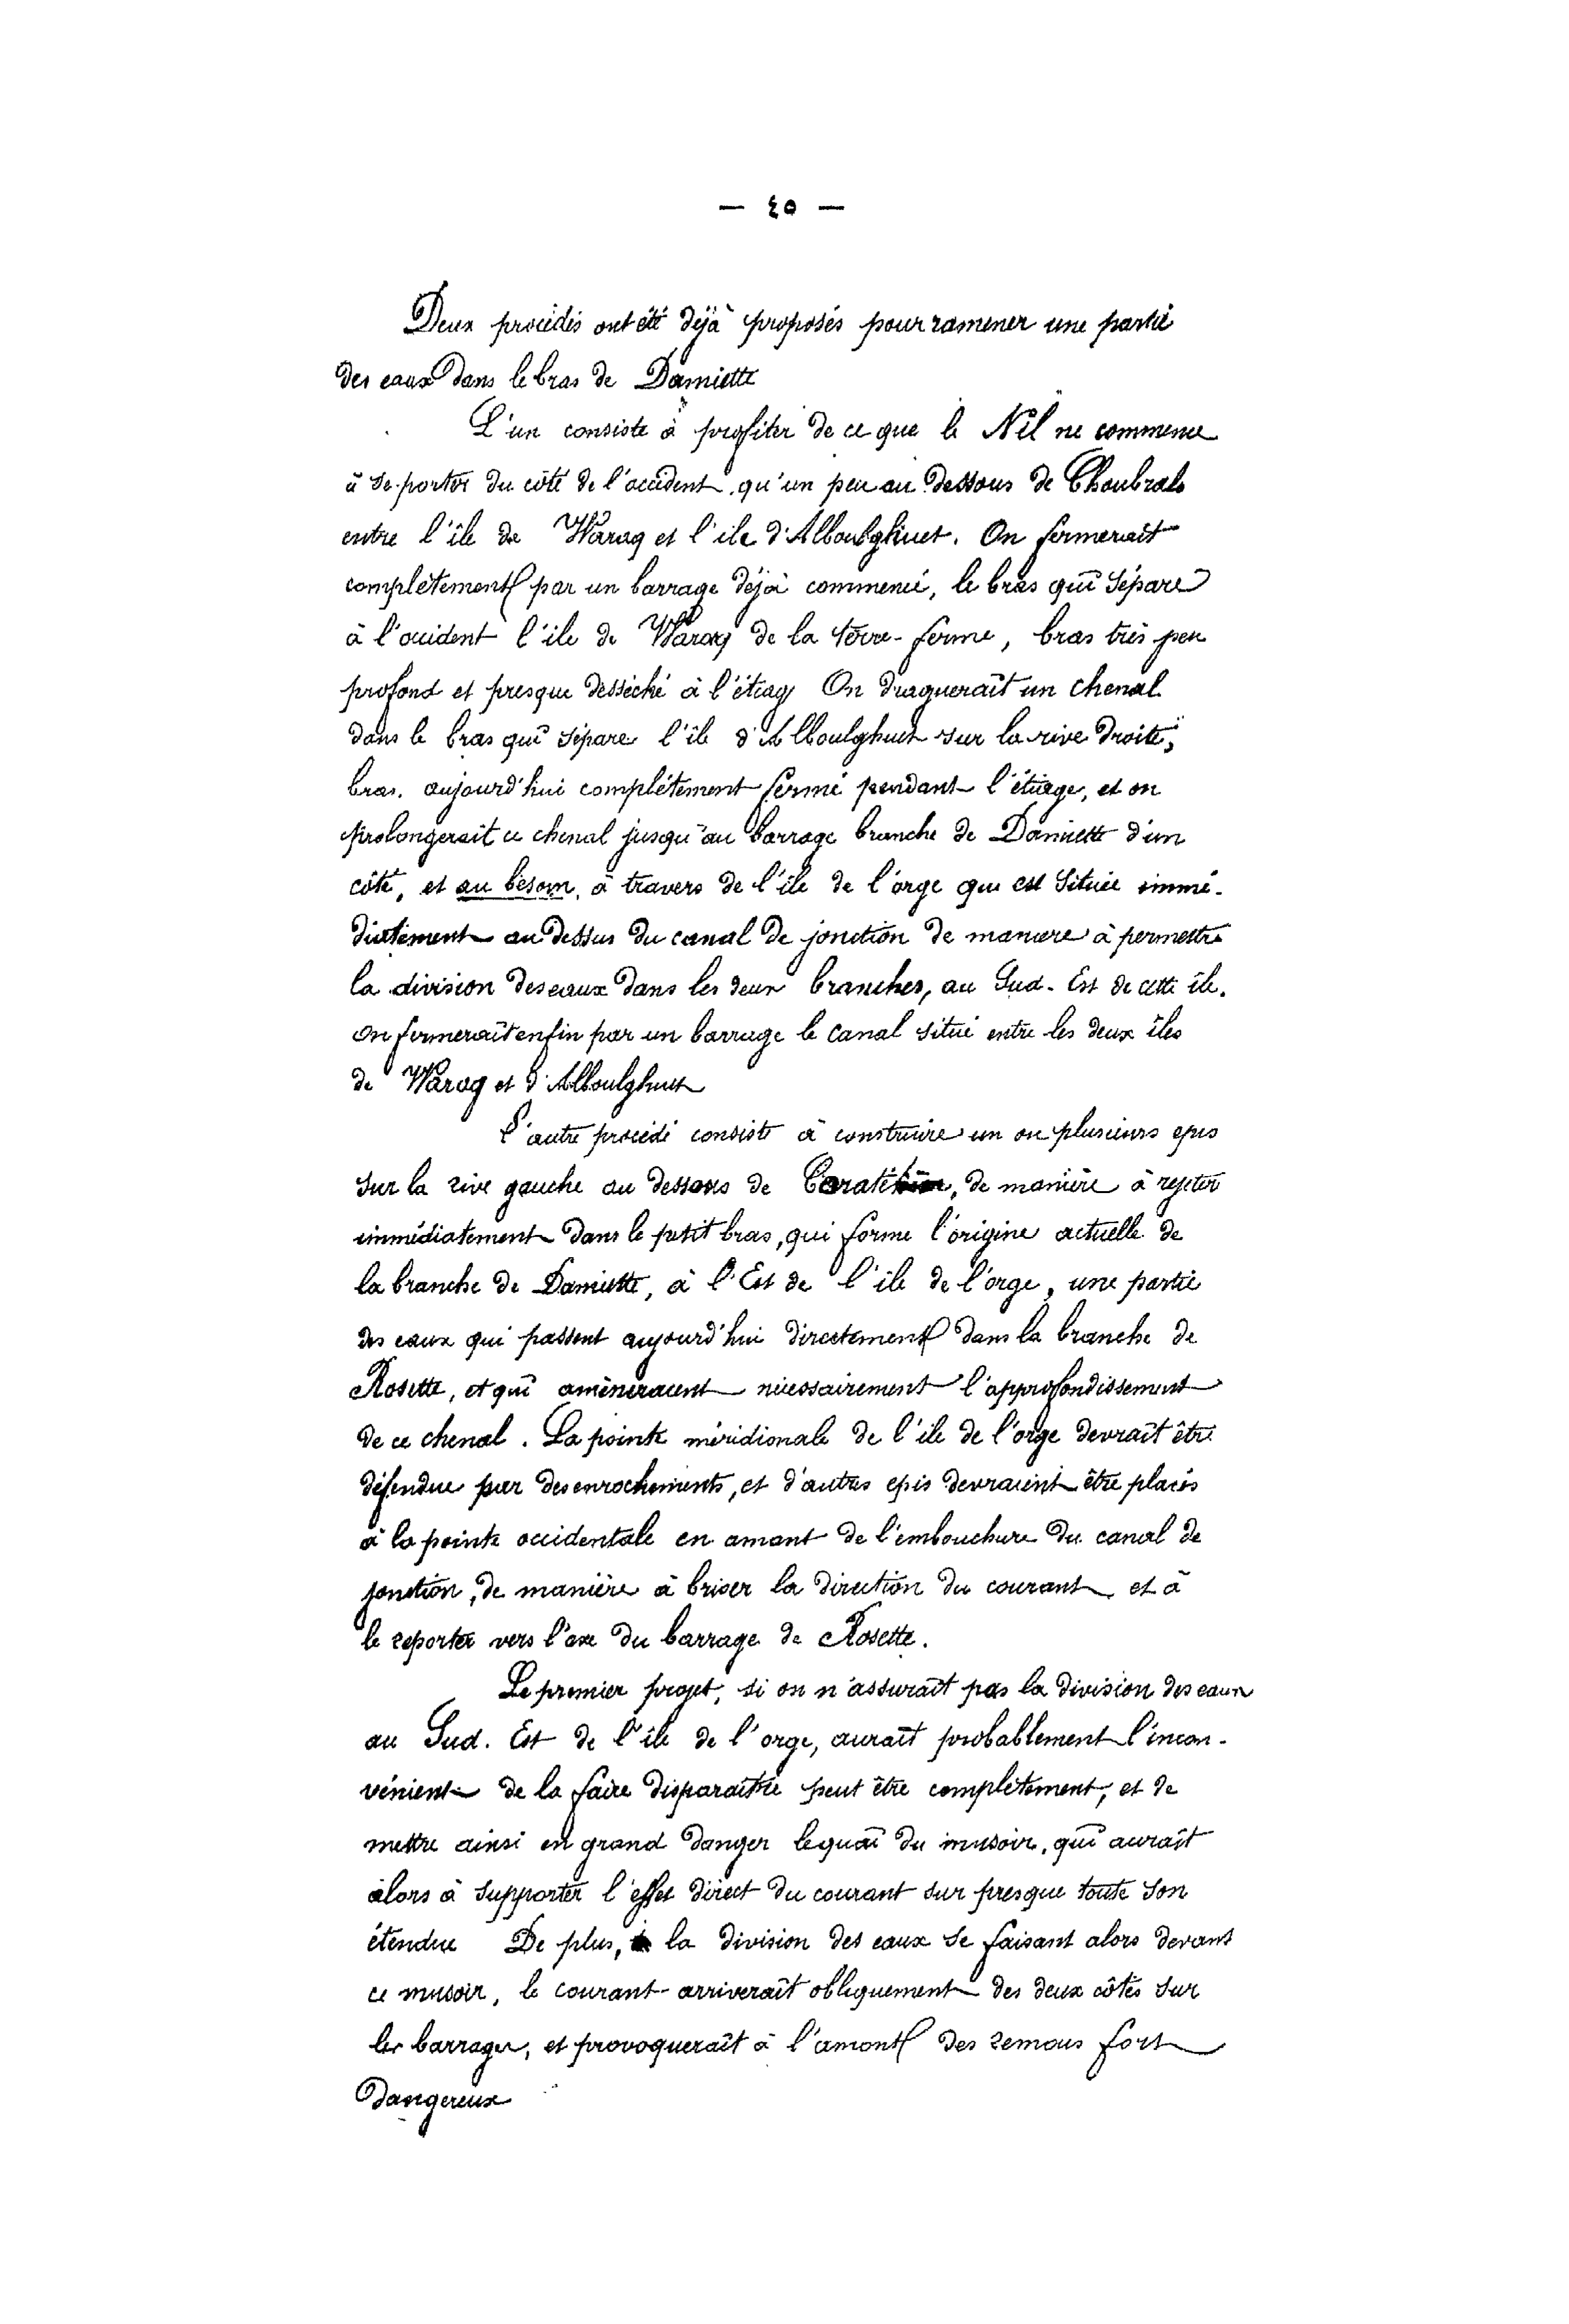 — ٤٥ —
Deux procédés ont été déjà proposés pour ramener une partie
des eaux dans le bras de Damiette
L'un consiste à profiter de ce que le Nil ne commence
à se porter du côté de l'occident qu'un peu au dessous de
entre l'île de Waraq et l'île d'Alboulghuet. On fermerait
complètement par un barrage déjà commencé, le bras qui sépare
à l'occident l'île de Waraq de la terre-ferme, bras très peu
profond et presque desséché à l'étiage On draguerait un chenal
dans le bras qui sépare l'île d'Alboulghuet sur la rive droite,
bras. aujourd'hui complétement fermé pendant l'étiage, et on
prolongerait ce chenal jusqu'au barrage branche de Damiette d'un
côté, et au besoin, à travers de l'île de l'orge qui est située immé-
diatement au dessus du canal de jonction de manière à permettre
la division des eaux dans les deux branches, au Sud-Est de cette île.
on fermerait enfin par un barrage le canal situé entre les deux îles
de Waraq et d'Alboulghuet
L'autre procédé consiste à construire un ou plusieurs epis
sur la rive gauche au dessous de de manière à rejeter
immédiatement dans le petit bras, qui forme l'origine actuelle de
la branche de Damiette, à l'Est de l'île de l'orge, une partie
des eaux qui passent aujourd'hui directement dans la branche de
Rosette, et qui amèneraient nécessairement l'approfondissement
de ce chenal. La pointe méridionale de l'île de l'orge devrait être
défendue par des enrochements, et d'autres epis devraient être placés
à la pointe occidentale en amont de l'embouchure du canal de
jonction, de manière à briser la direction du courant et à
le reporter vers l'axe du barrage de Rosette.
Le premier projet, si on n'assurait pas la division des eaux
au Sud. Est de l'île de l'orge, aurait probablement l'incon-
vénient de la faire disparaître peut être complètement, et de
mettre ainsi en grand danger le quai du musoir, qui aurait
alors à supporter l'effet direct du courant sur presque toute son
étendue De plus, la division des eaux se faisant alors devant
ce musoir, le courant arriverait obliquement des deux côtés sur
les barrages, et provoquerait à l'amont des remous fort
dangereux